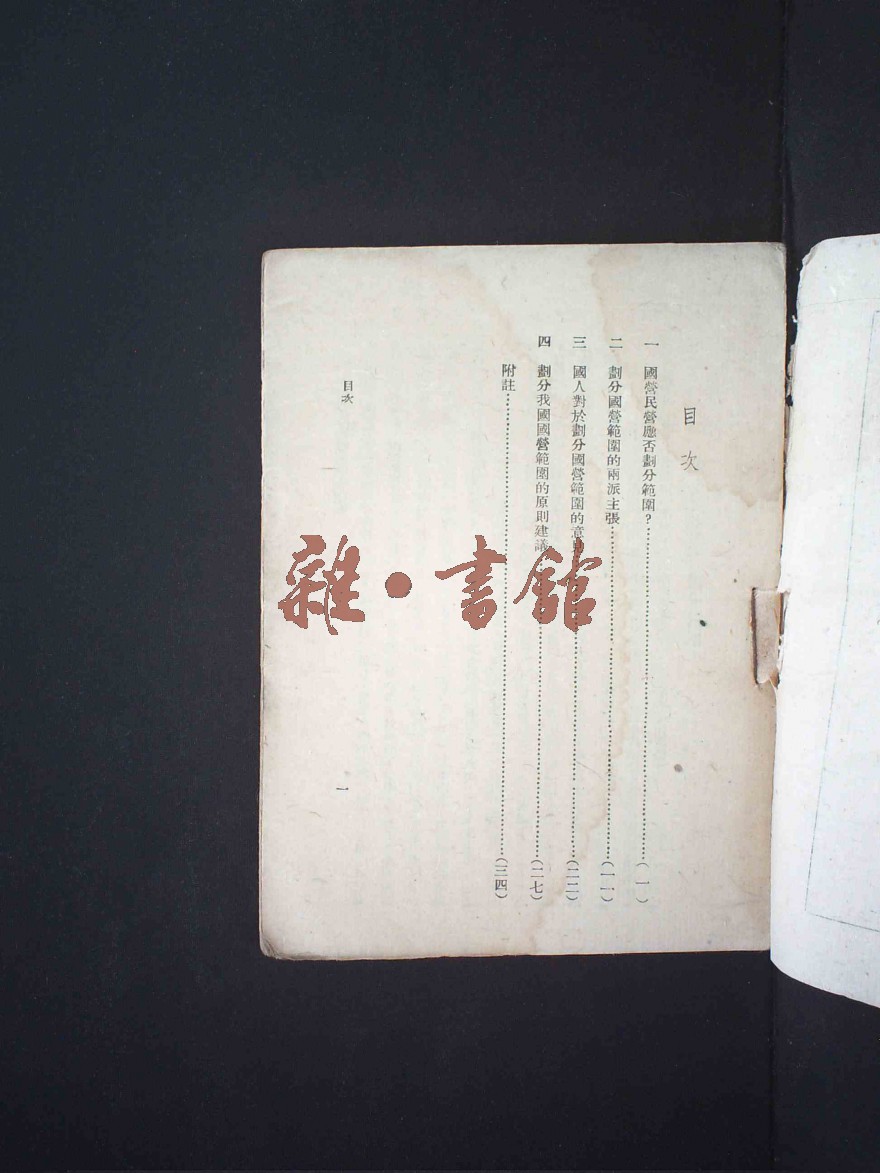 目次
一 國營民營應否劃分範圍?……(一)
二 劃分國營範圍的兩派主張……(一一)
三 國人對於劃分國營範圍的意……(二二)
四 劃分我國國營範圍的原則建議……(二七)
附註……(三四)
目次
一
雜·書館